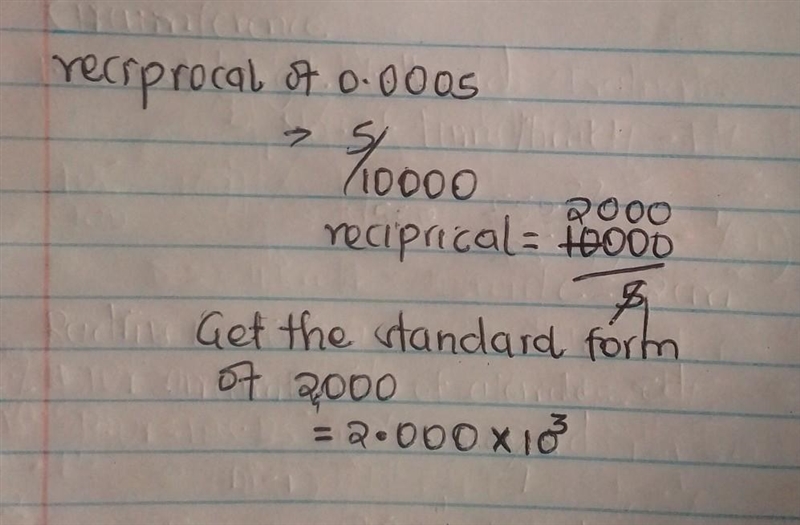 reciprocal of 0.0005
→ 5/10000
2000
reciprical = 10000
5
Get the standard form
of 2,000
= 2.000 × 10³